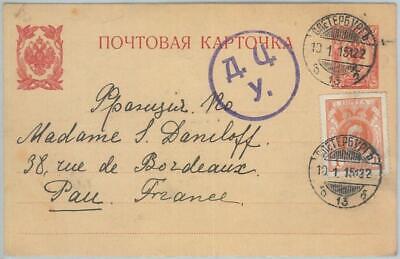 ПОЧТОВАЯ КАРТОЧКА
С.ПЕТЕРБУРГЪ
10 1 15
13
Д Ц
У.
Франція. По
Madame S. Daniloff
38, rue de Bordeaux.
Pau. France.
ПЕТЕРБУРГЪ
10.1.15
13